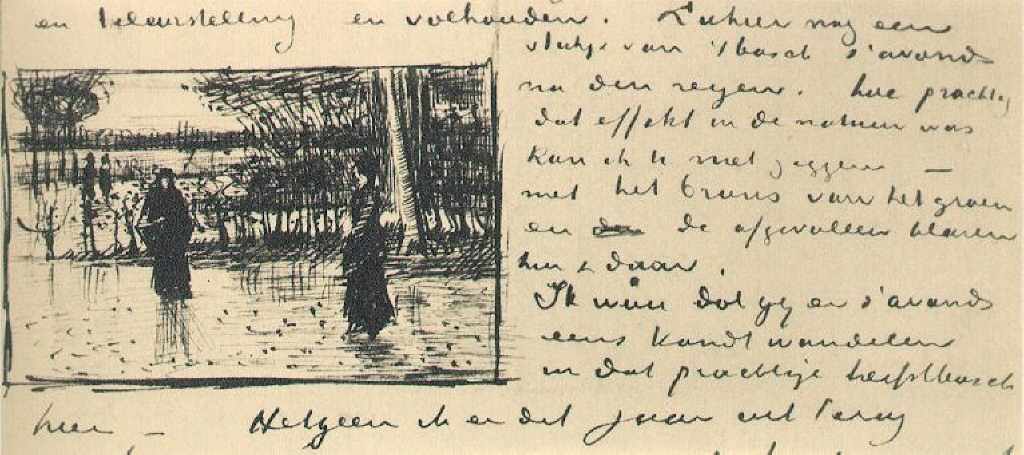 en kleurstelling en volhouden. Ziehier nog een
stukje van 't bosch s'avonds
na den regen. hoe prachtig
dat effekt in de natuur was
kan ik U niet zeggen —
met het brons van het groen
en de afgevallen blaren
hier & daar.
Ik wou dat gij er s'avonds
eens kondt wandelen
in dat prachtige herfstbosch
hier — Hetgeen ik er dit jaar uit terug